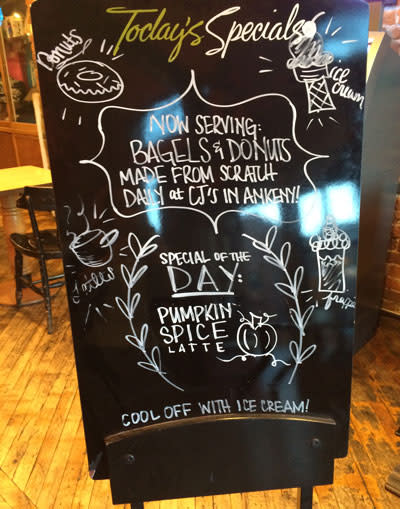 Today's Specials
Donuts
ice cream
NOW SERVING:
BAGELS & DONUTS
MADE FROM SCRATCH
DAILY at CJ'S IN ANKENY!
SPECIAL OF THE
DAY:
PUMPKIN
SPICE
LATTE
COOL OFF WITH ICE CREAM!